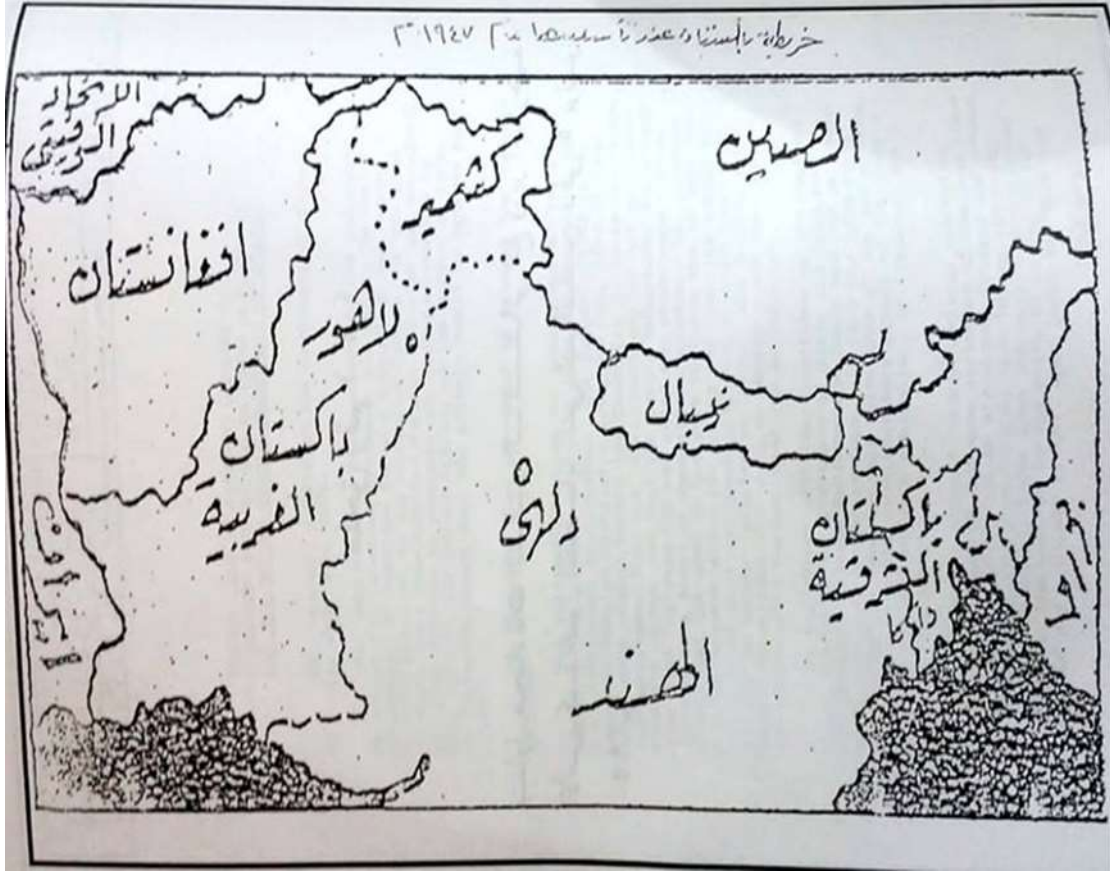 خريطة باكستان عند تأسيسها عام ١٩٤٧م
الاتحاد
السوفيتي
الصين
كشمير
افغانستان
لاهور
نيبال
باكستان
الغربية
دلهي
باكستان
الشرقية
ايران
بورما
الهند